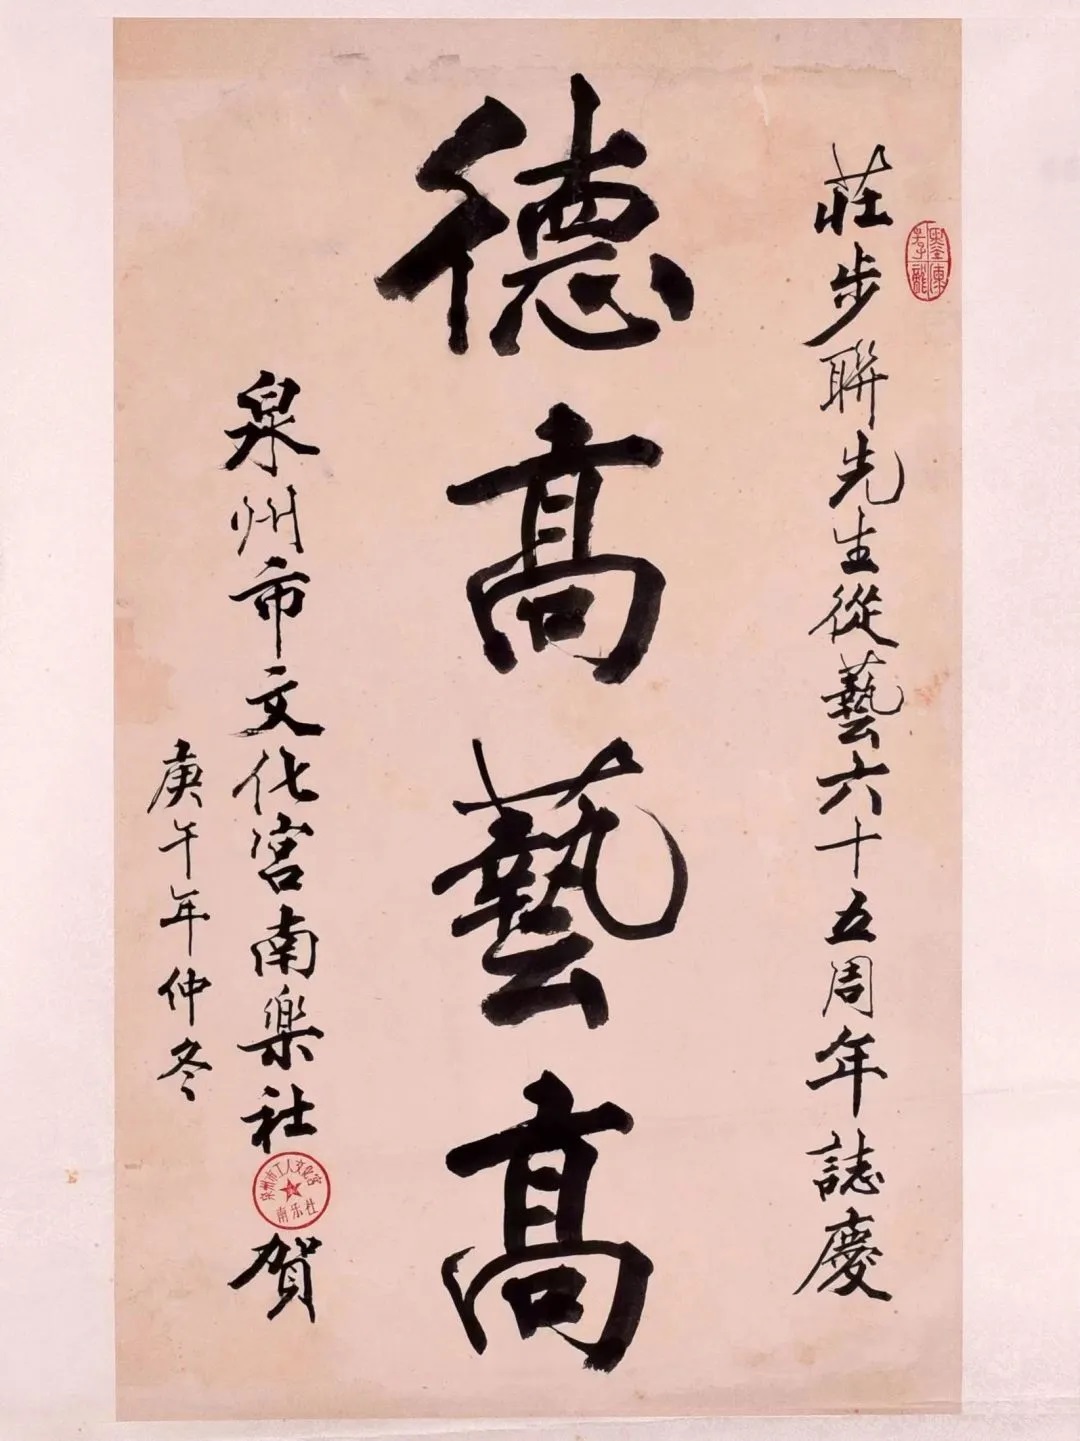 莊步聯先生從藝六十五周年誌慶
德高藝高
泉州市文化宮南樂社
賀
庚午年仲冬
泉州市工人文化宫
南乐社